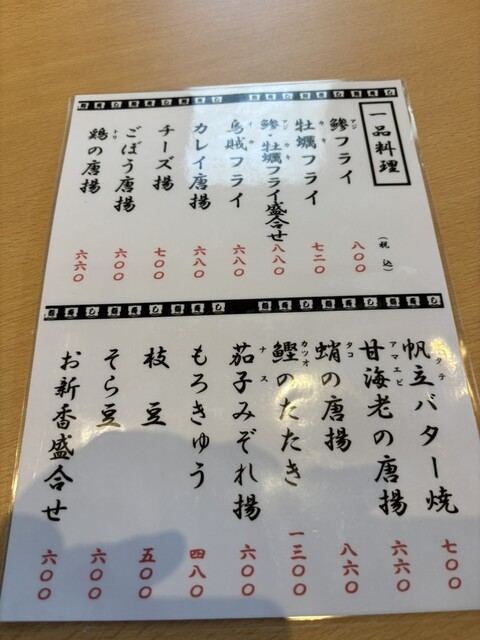 一品料理
(税込)
アジ
鯵フライ
八〇〇
カキ
牡蠣フライ
七二〇
アジ カキ
鯵・牡蠣フライ盛合せ
八八〇
イカ
烏賊フライ
六八〇
カレイ唐揚
六八〇
チーズ揚
七〇〇
ごぼう唐揚
六〇〇
トリ
鶏の唐揚
六六〇
帆立バター焼
七〇〇
アマエビ
甘海老の唐揚
六六〇
タコ
蛸の唐揚
八六〇
カツオ
鰹のたたき
一三〇〇
ナス
茄子みぞれ揚
六〇〇
もろきゅう
四八〇
枝豆
五〇〇
そら豆
六〇〇
お新香盛合せ
六〇〇